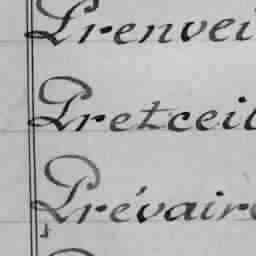 Prenvei
Pretceil
Prévaire